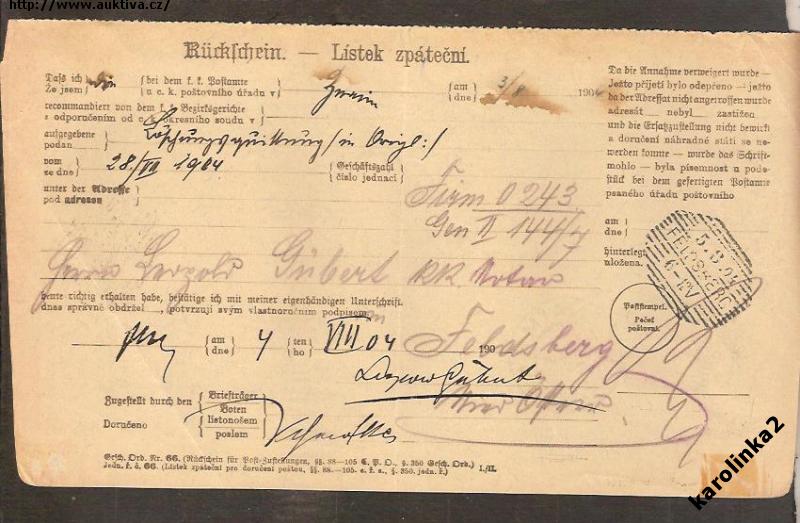 http://www.auktiva.cz/
Rückschein. — Lístek zpáteční.
Dass ich bei dem k. k. Postamte am 3/8 190
Že jsem u c. k. poštovního úřadu v dne
rekommandiert von dem k. k. Bezirksgerichte
s odporučením od c. k. okresního soudu v
aufgegebene Löschungsquittung /in Origl:/
podan
vom 28/VII 1904 Geschäftszahl
ze dne číslo jednací
unter der Adresse Firm 0 243
pod adresou
Gen II 144/7
Herrn Leopold Gübert kk Notar
heute richtig erhalten habe, bestätige ich mit meiner eigenhändigen Unterschrift.
dnes správně obdržel, potvrzuji svým vlastnoručním podpisem.
am 4 ten VIII 04 190
dne ho
Feldsberg
Zugestellt durch den Briefträger
Boten
listonošem
Doručeno poslem
Gesch. Ord. Nr. 66. (Rückschein für Post-Zustellungen, §§. 88—105 C. P. O., §. 350 Gesch. Ord.)
Jedn. ř. č. 66. (Lístek zpáteční pro doručení poštou, §§. 88—105. c. ř. s., §. 350 jedn. ř.) I./II.
Da die Annahme verweigert wurde —
Ježto přijetí bylo odepřeno — ježto
da der Adressat nicht angetroffen wurde
adresát nebyl zastižen
und die Ersatzzustellung nicht bewirkt
a doručení náhradné státi se ne-
werden konnte — wurde das Schrift-
mohlo — byla písemnost u pode-
stück bei dem gefertigten Postamte
psaného úřadu poštovního
am
dne
hinterlegt.
uložena.
Poststempel.
Pečeť
poštovní.
FELDSBERG
karolinka2